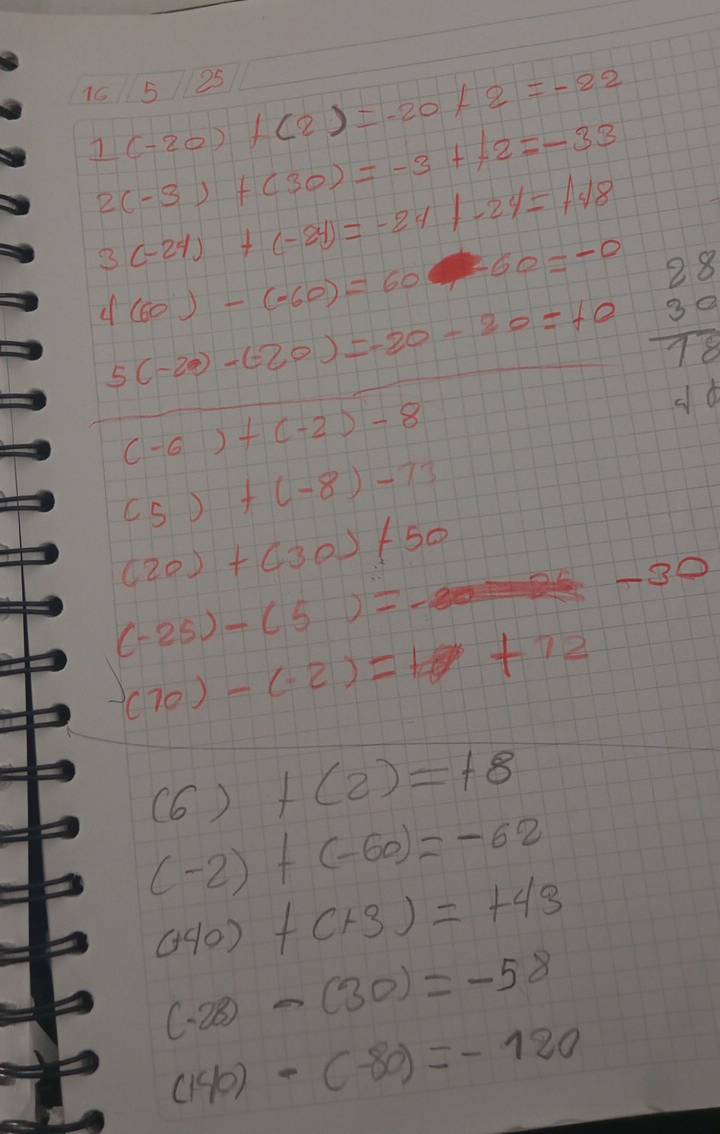 16 5 25
1 (-20) + (2) = -20 + 2 = -22
2 (-3) + (30) = -3 + +2 = -33
3 (-24) + (-24) = -24 + -24 = +48
4 (60) - (-60) = 60 -60 = -0
5 (-20) - (-20) = -20 - 20 = +0
28
30
18
(-6) + (-2) - 8
(5) + (-8) - 13
(20) + (30) + 50
(-25) - (5) = - 30
(10) - (-2) = + 12
(6) + (2) = +8
(-2) + (-60) = -62
(+40) + (+3) = +43
(-28) - (30) = -58
(+40) - (-80) = - 120